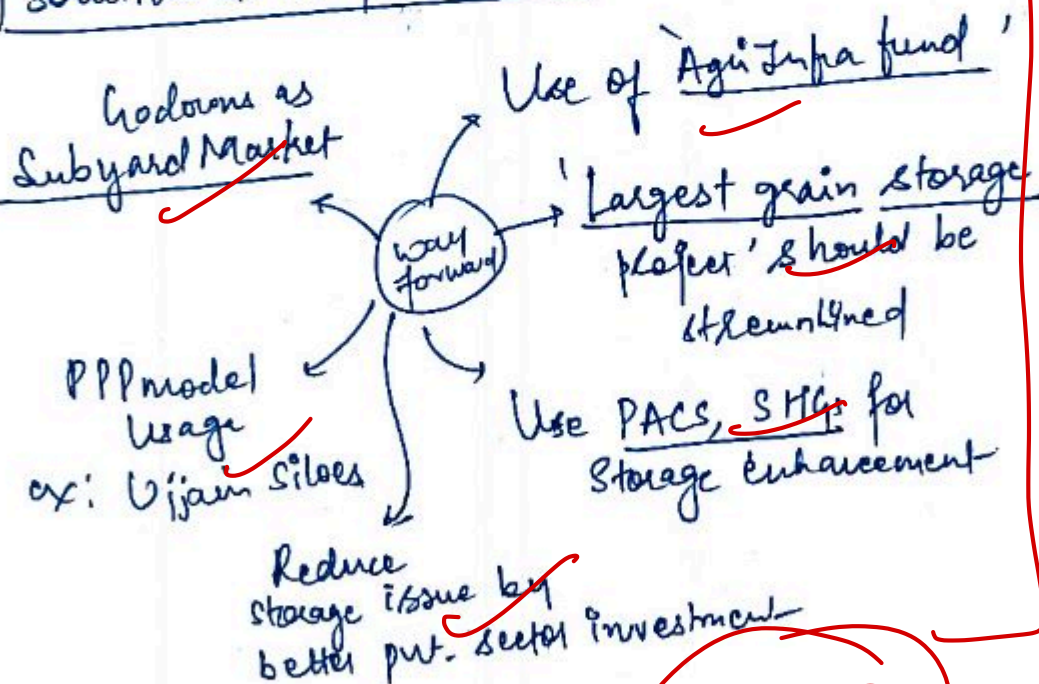 Godowns as
Subyard Market
Use of 'Agri Infra fund'
'Largest grain storage
project' should be
streamlined
way
forward
PPP model
Usage
ex: Ujjain Siloes
Use PACS, SHGs for
Storage enhancement
Reduce
storage issue by
better pvt. sector investment